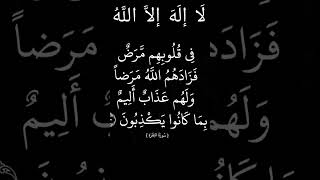 لَا إِلَٰهَ إِلَّا اللَّهُ
فِى قُلُوبِهِم مَّرَضٌ
فَزَادَهُمُ اللَّهُ مَرَضاً
وَلَهُم عَذَابٌ أَلِيمٌ
بِمَا كَانُوا يَكْذِبُونَ